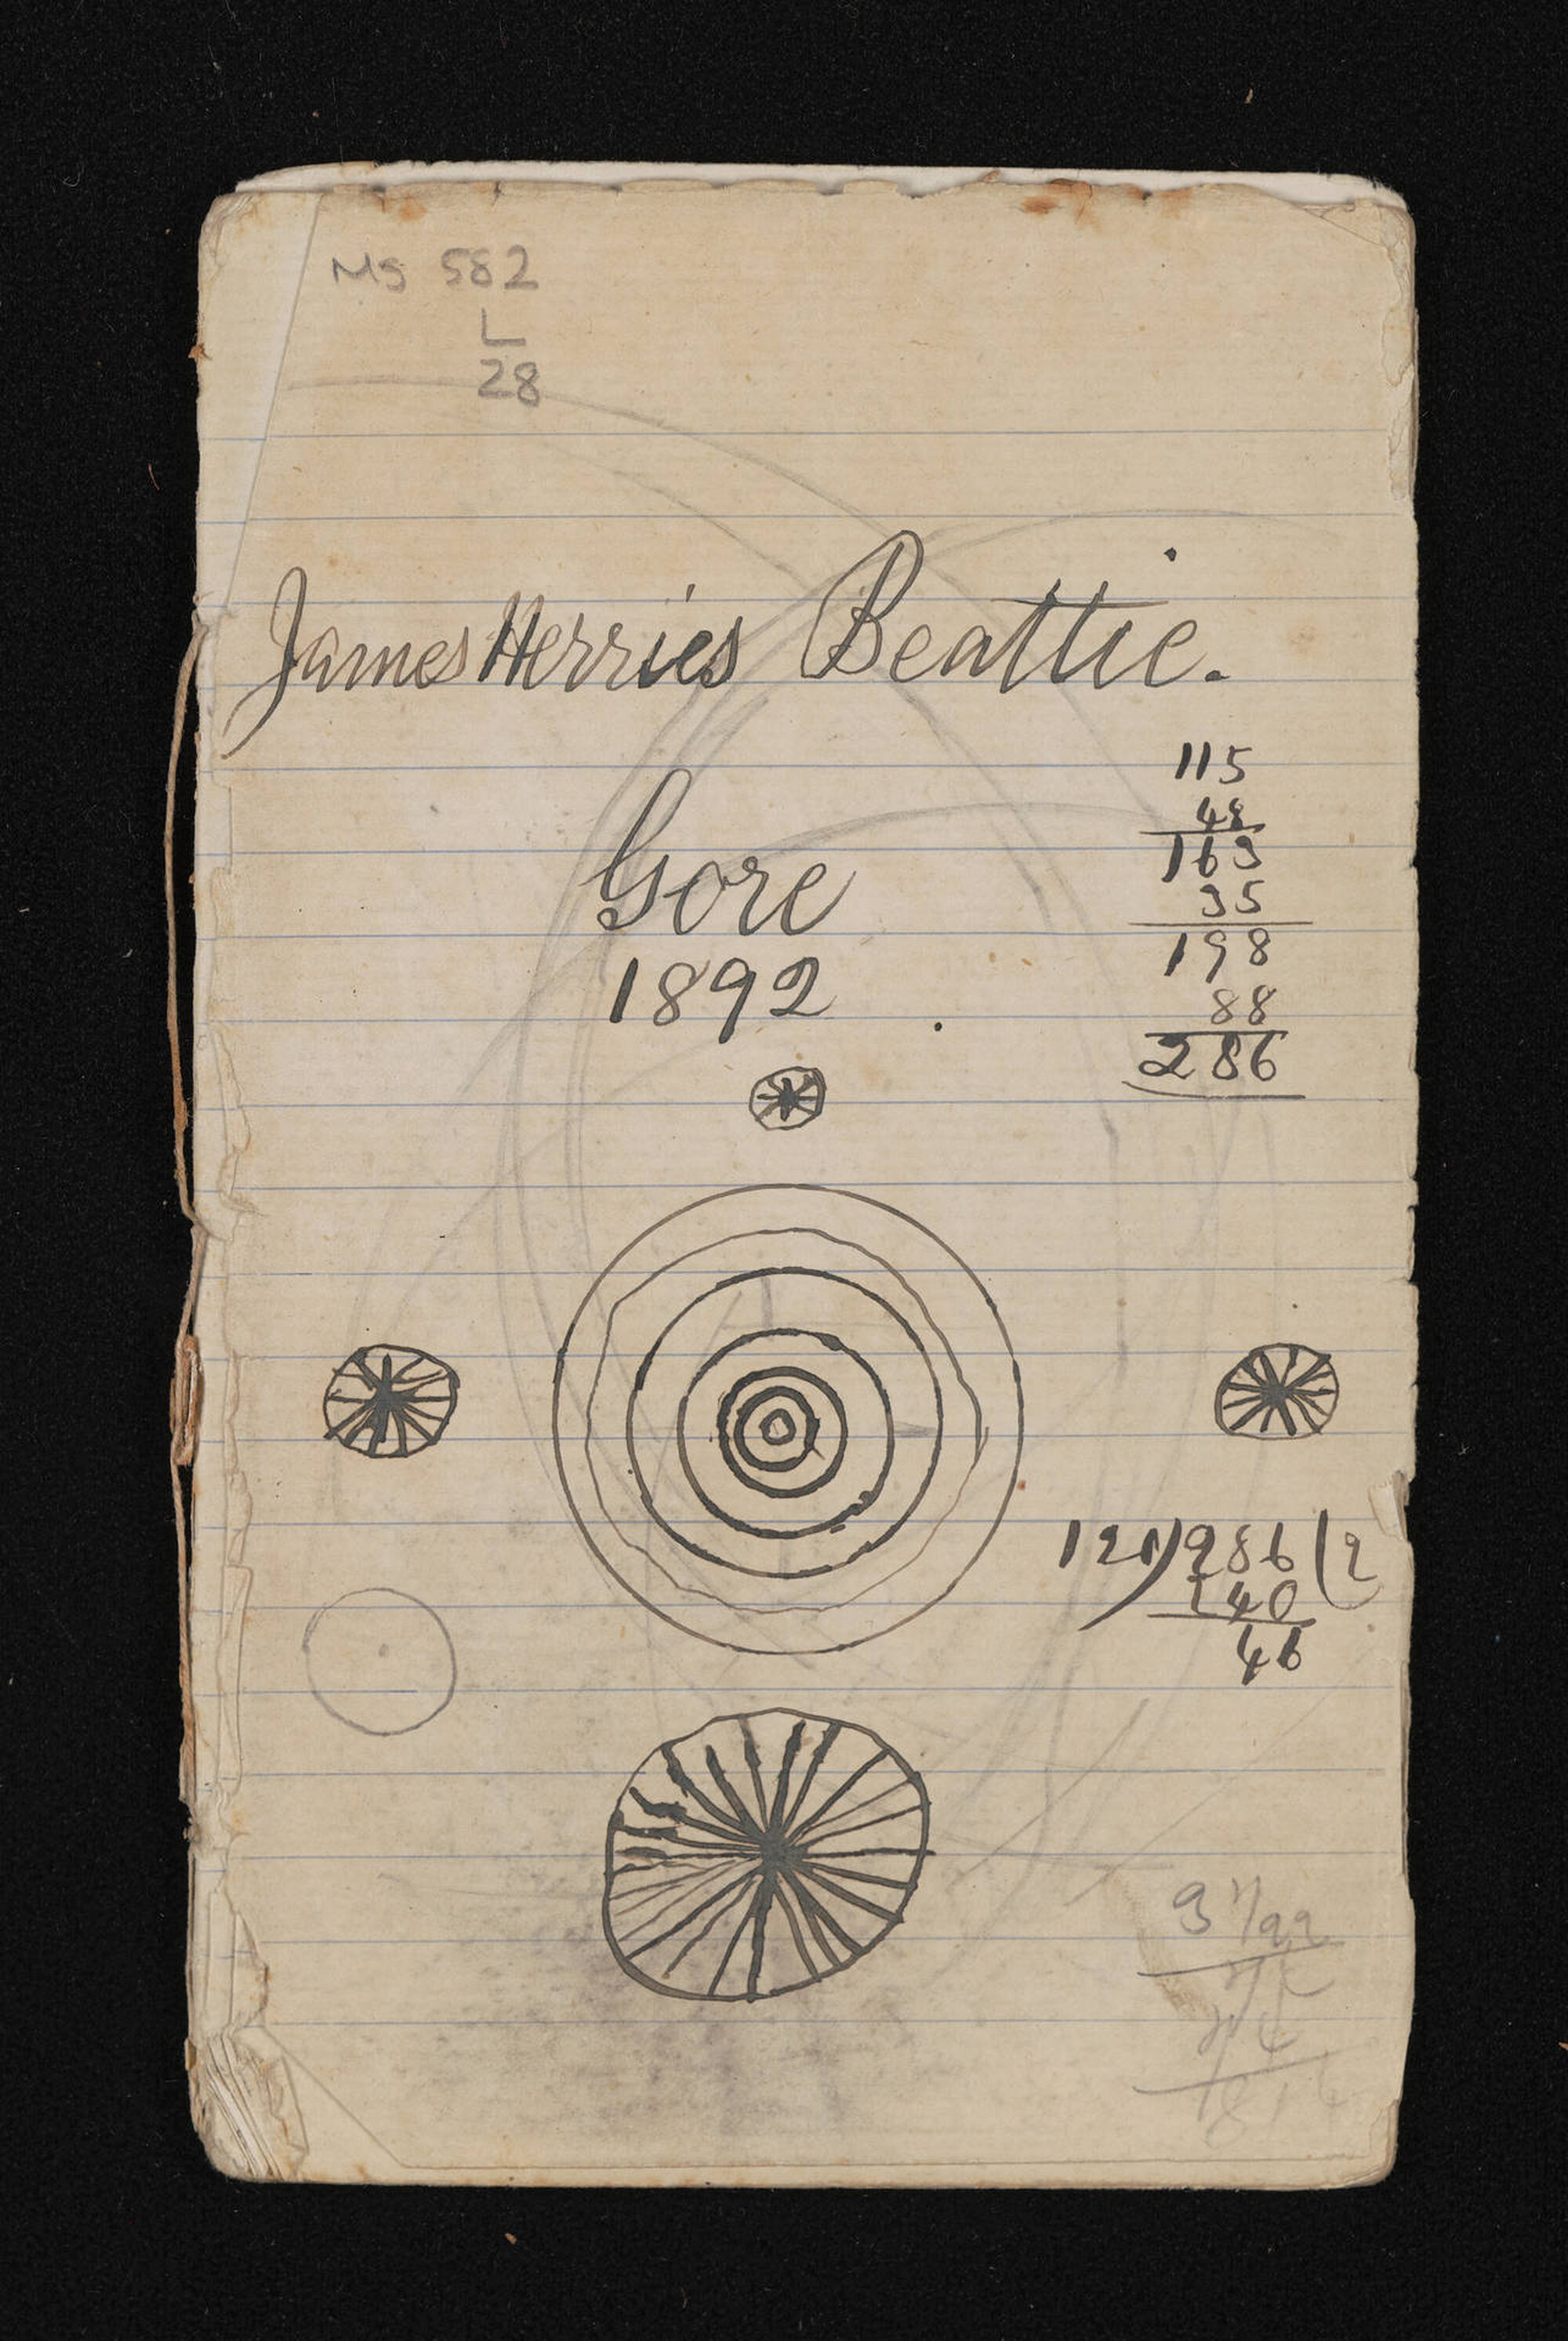 MS 582
L
28
James Herries Beattie.
Gore
1892
115
48
163
35
198
88
286
286 (2
240
46